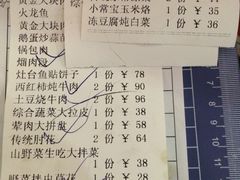 小常宝玉米烙 1份 ¥ 35
冻豆腐炖白菜 1份 ¥ 36
黄金大块肉
火龙鱼
黄金大块肉
鹅蛋炒蒜
锅包肉
熘肉段
灶台鱼贴饼子 1份 ¥ 78
西红柿炖牛肉 2份 ¥ 90
土豆烧牛肉 2份 ¥ 94
综合蔬菜大拉皮 1份 ¥ 38
荤肉大拼盘 1份 ¥ 58
传统肘花 2份 ¥ 64
山野菜生吃大拌菜
1份 ¥ 38
1份 ¥ 28